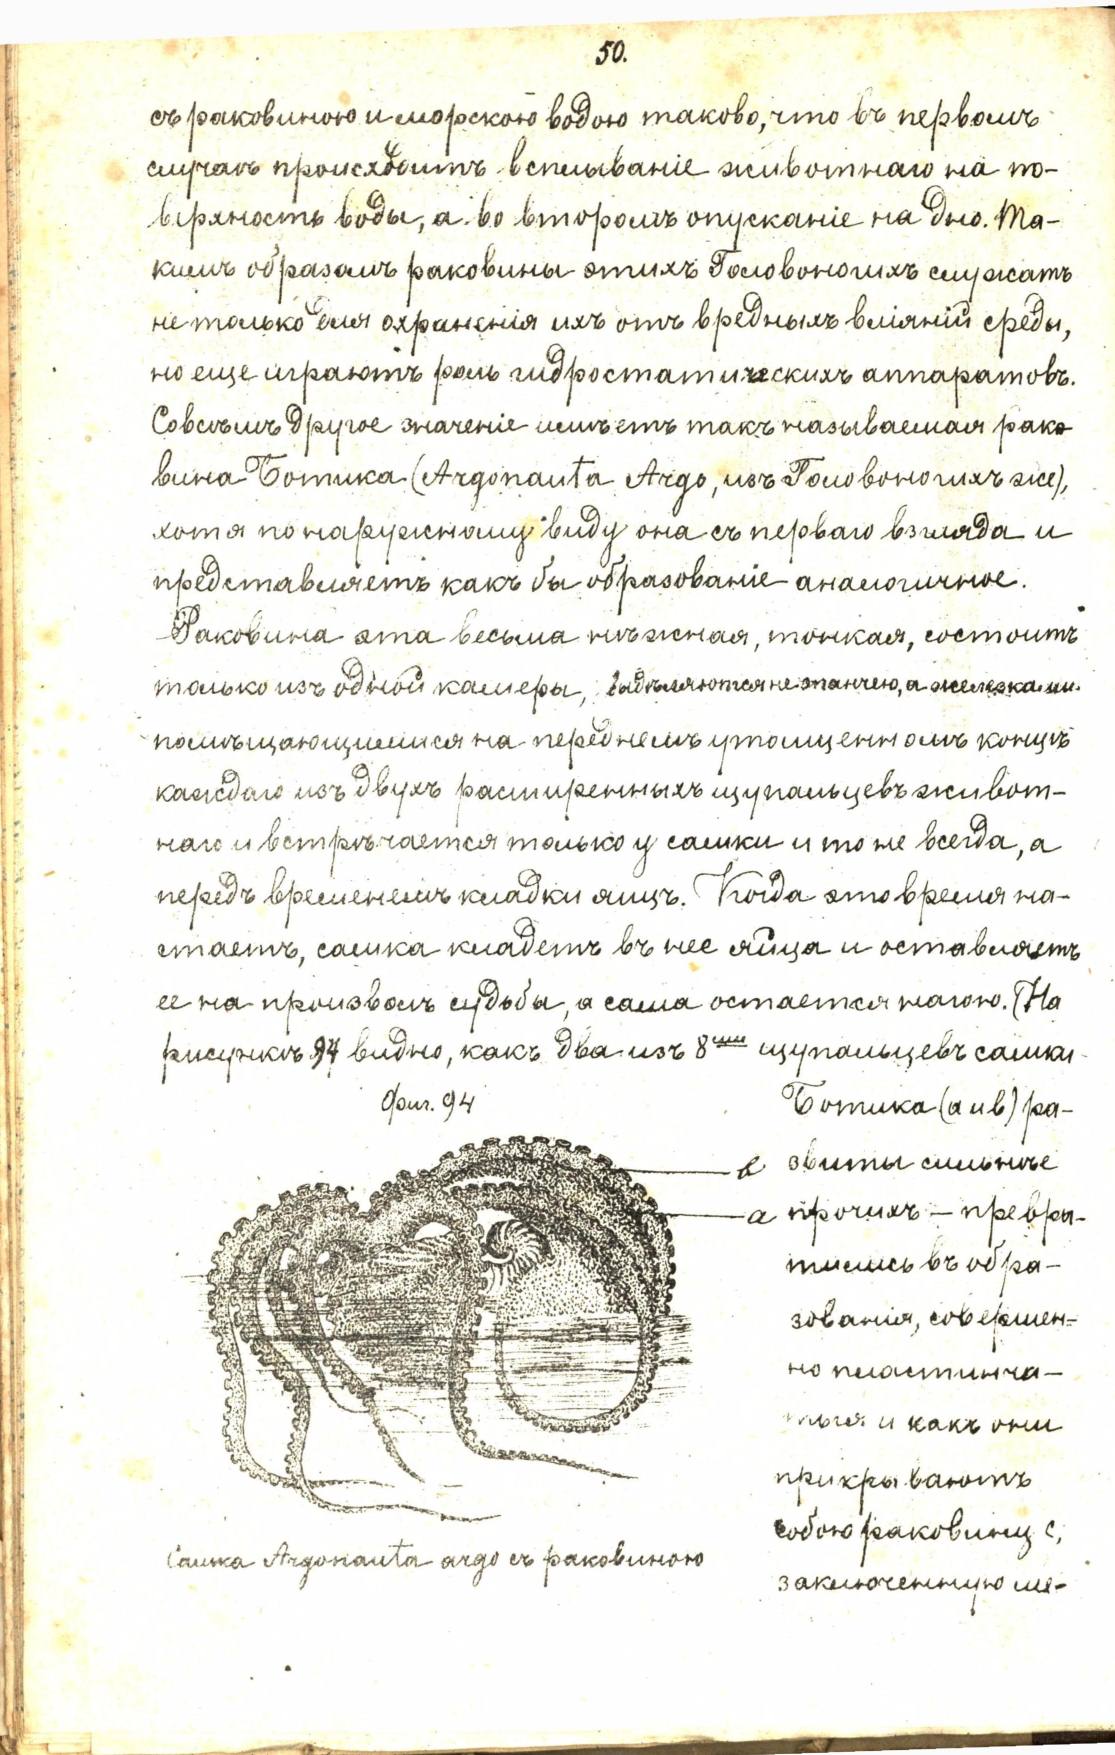 50.
съ раковиною и морскою водою таково, что въ первомъ
случаѣ происходитъ всплываніе животнаго на по-
верхность воды, а во второмъ опусканіе на дно. Та-
кимъ образомъ раковины этихъ Головоногихъ служатъ
не только для охраненія ихъ отъ вредныхъ вліяній среды,
но еще играютъ роль гидростатическихъ аппаратовъ.
Совсѣмъ другое значеніе имѣетъ такъ называемая рако
вина Ботика (Argonauta Argo, изъ Головоногихъ же),
хотя по наружному виду она съ перваго взгляда и
представляетъ какъ бы образованіе аналогичное.
Раковина эта весьма нѣжная, тонкая, состоитъ
только изъ одной камеры, выдѣляются не мантіею, а железками
помѣщающимися на переднемъ утолщенномъ концѣ
каждаго изъ двухъ расширенныхъ щупальцевъ живот-
наго и встрѣчается только у самки и то не всегда, а
передъ временемъ кладки яицъ. Когда это время на-
стаетъ, самка кладетъ въ нее яйца и оставляетъ
ее на произволъ судьбы, а сама остается нагою. (На
рисункѣ 94 видно, какъ два изъ 8ми щупальцевъ самки
Ботика (а и в) ра-
звиты сильнѣе
прочихъ — превра-
тились въ обра-
зованія, совершен-
но пластинча-
тыя и какъ они
прикрываютъ
собою раковину с,
заключенную ме-
Фиг. 94
в
а
Самка Argonauta argo съ раковиною